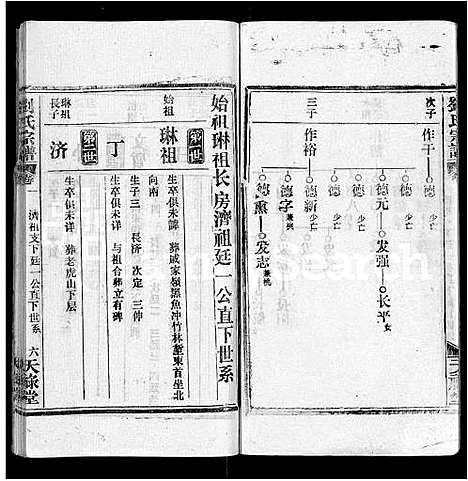 劉氏宗譜
次子
作干
德
少亡
德
少亡
德元
发强
长平
女
德
少亡
德
少亡
三子
作裕
德新
少亡
德字
兼祧
德熏
发志
兼祧
始祖琳祖长房濟祖廷一公直下世系
始祖
第一世
琳祖
生卒俱未詳 葬戚家嶺黑魚冲竹林塹東首坐北
向南
生子三 長济 次定 三仲
丁
生卒俱未详 与祖合葬立有碑
琳祖
長子
第二世
济
生卒俱未详 葬老虎山下层
劉氏宗譜
卷
濟祖支下廷一公直下世系
六
天祿堂